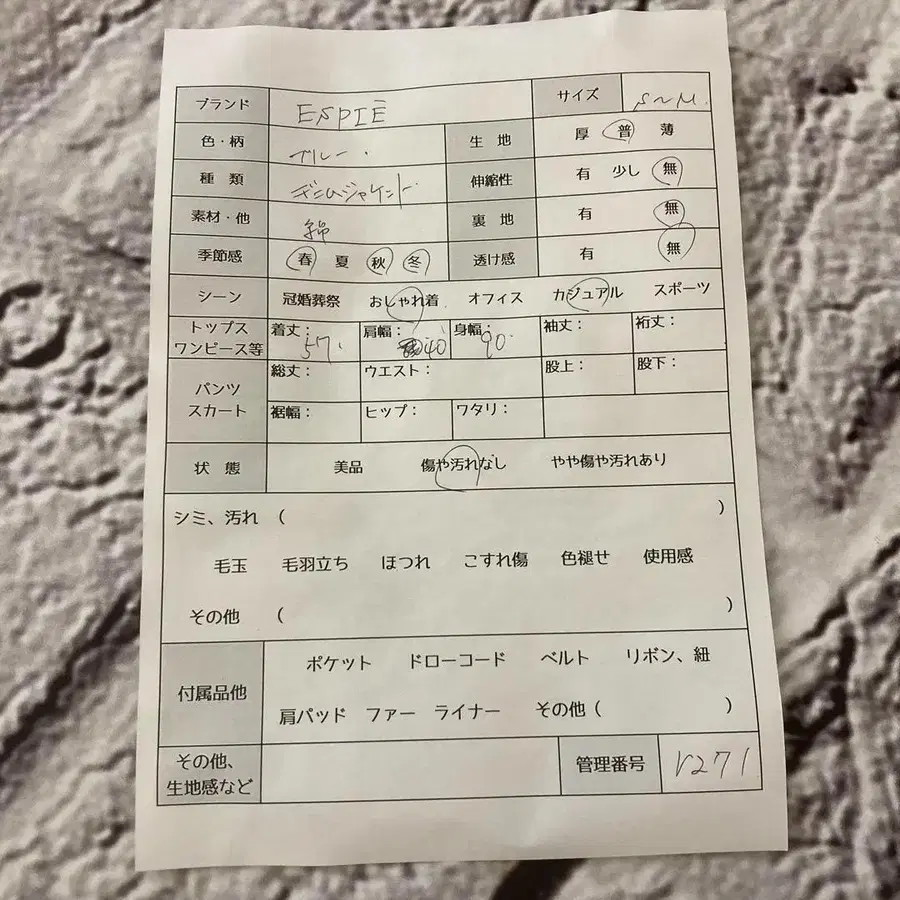 ブランド ESPIE サイズ S~M.
色・柄 ブルー. 生 地 厚 普 薄
種 類 デニムジャケット 伸縮性 有 少し 無
素材・他 綿 裏 地 有 無
季節感 春 夏 秋 冬 透け感 有 無
シーン 冠婚葬祭 おしゃれ着 オフィス カジュアル スポーツ
トップス
ワンピース等 着丈: 57. 肩幅: 40 身幅: 90. 袖丈: 裄丈:
パンツ
スカート 総丈: ウエスト: 股上: 股下:
裾幅: ヒップ: ワタリ:
状 態 美品 傷や汚れなし やや傷や汚れあり
シミ、汚れ ( )
毛玉 毛羽立ち ほつれ こすれ傷 色褪せ 使用感
その他 ( )
付属品他 ポケット ドローコード ベルト リボン、紐
肩パッド ファー ライナー その他 ( )
その他、
生地感など 管理番号 V271